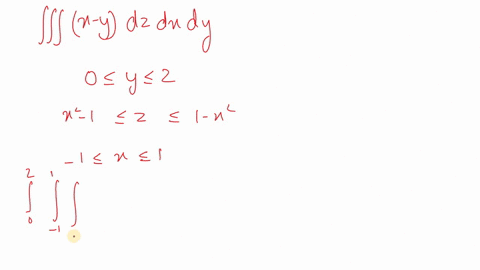 ∭ (x-y) dz dx dy
0 ≤ y ≤ 2
x²-1 ≤ z ≤ 1-x²
-1 ≤ x ≤ 1
∫₀² ∫₋₁¹ ∫